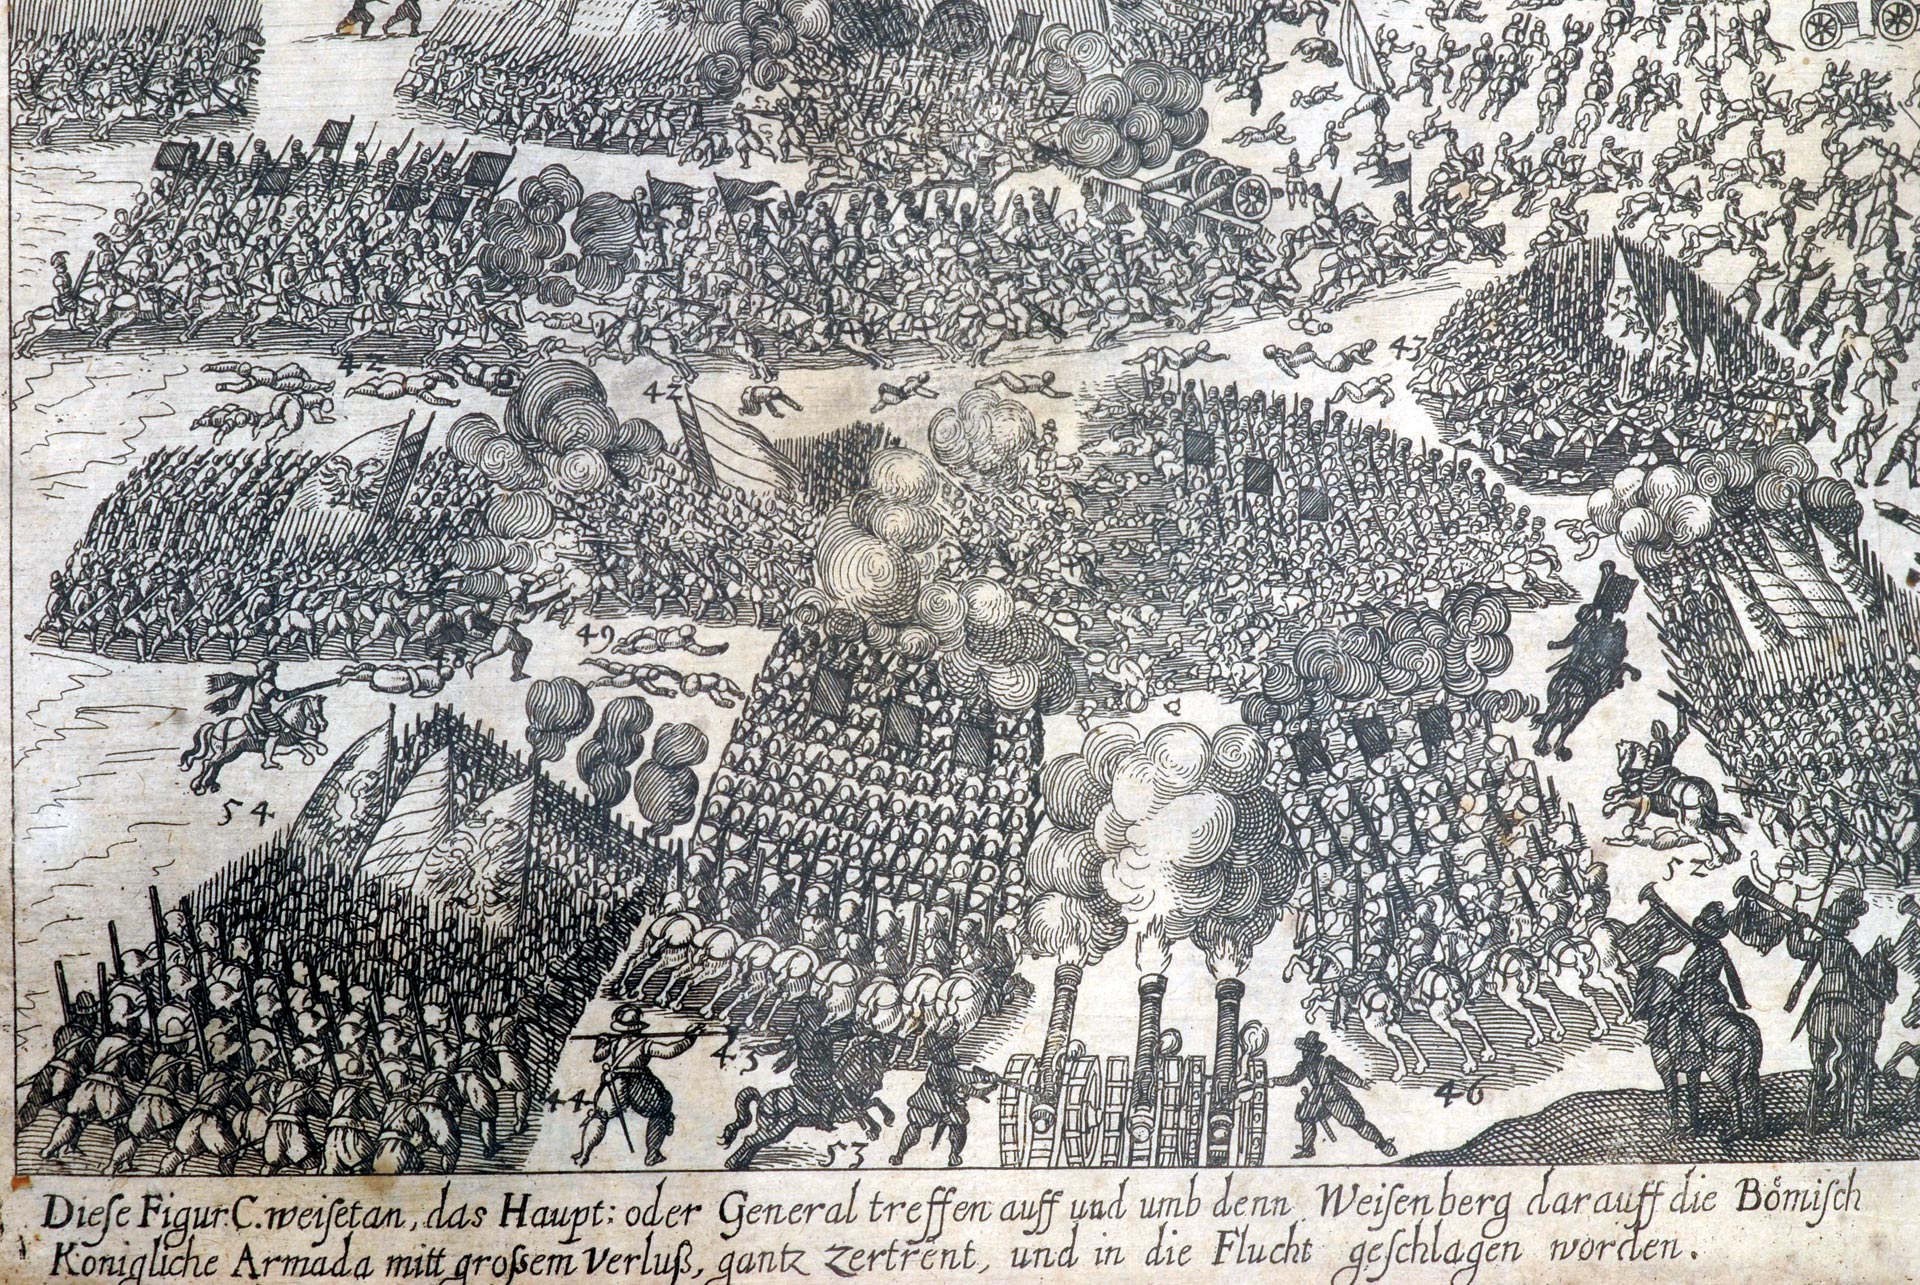 42
42
47
49
54
52
43
44.
46
53
Dieſe Figur. C. weiſet an, das Haupt: oder General treffen auff und umb denn Weiſenberg darauff die Bömiſch
Königliche Armada mitt groſsem Verluß, gantz zertrent, und in die Flucht geſchlagen worden.